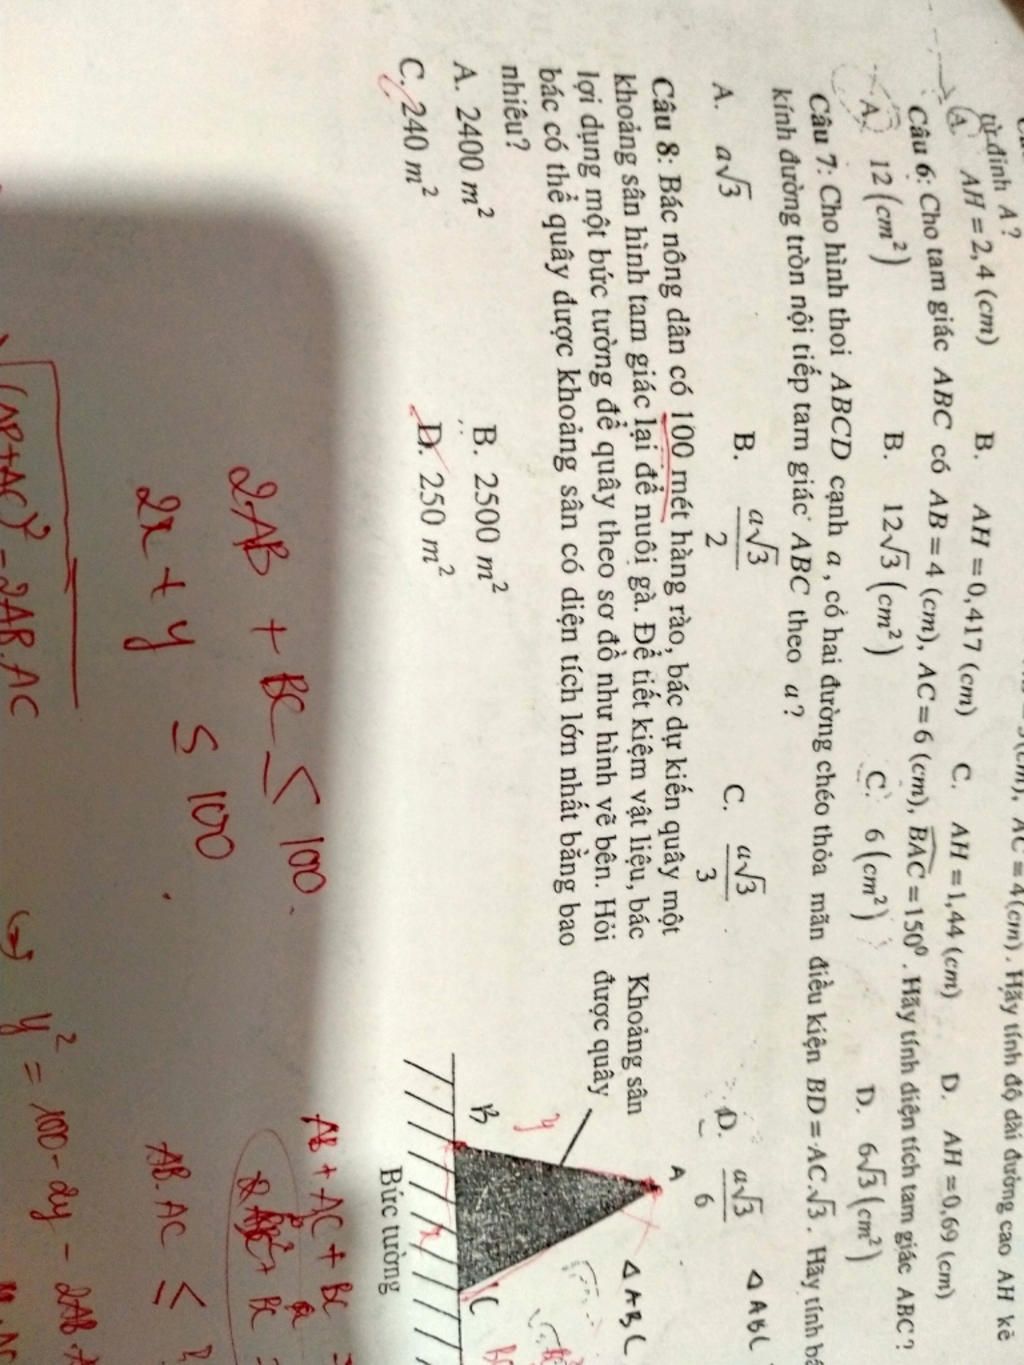 từ đỉnh A?
A. AH = 2,4 (cm) B. AH = 0,417 (cm) C. AH = 1,44 (cm) D. AH = 0,69 (cm)
Câu 6: Cho tam giác ABC có AB = 4 (cm), AC = 6 (cm), BAC = 150⁰. Hãy tính diện tích tam giác ABC?
A. 12 (cm²) B. 12√3 (cm²) C. 6 (cm²) D. 6√3 (cm²)
Câu 7: Cho hình thoi ABCD cạnh a, có hai đường chéo thỏa mãn điều kiện BD = AC.√3. Hãy tính
kính đường tròn nội tiếp tam giác ABC theo a?
A. a√3 B. a√3/2 C. a√3/3 D. a√3/6
Δ ABC
Câu 8: Bác nông dân có 100 mét hàng rào, bác dự kiến quây một
khoảng sân hình tam giác lại để nuôi gà. Để tiết kiệm vật liệu, bác
lợi dụng một bức tường để quây theo sơ đồ như hình vẽ bên. Hỏi
bác có thể quây được khoảng sân có diện tích lớn nhất bằng bao
nhiêu?
A. 2400 m² B. 2500 m²
C. 240 m² D. 250 m²
Khoảng sân
được quây
A
Δ ABC
y
B
x
C
Bức tường
2AB + BC ≤ 100.
2x + y ≤ 100
AB + AC + BC
AB.AC ≤
(AB+AC)² - 2AB.AC
y² = 100 - 2y - 2AB